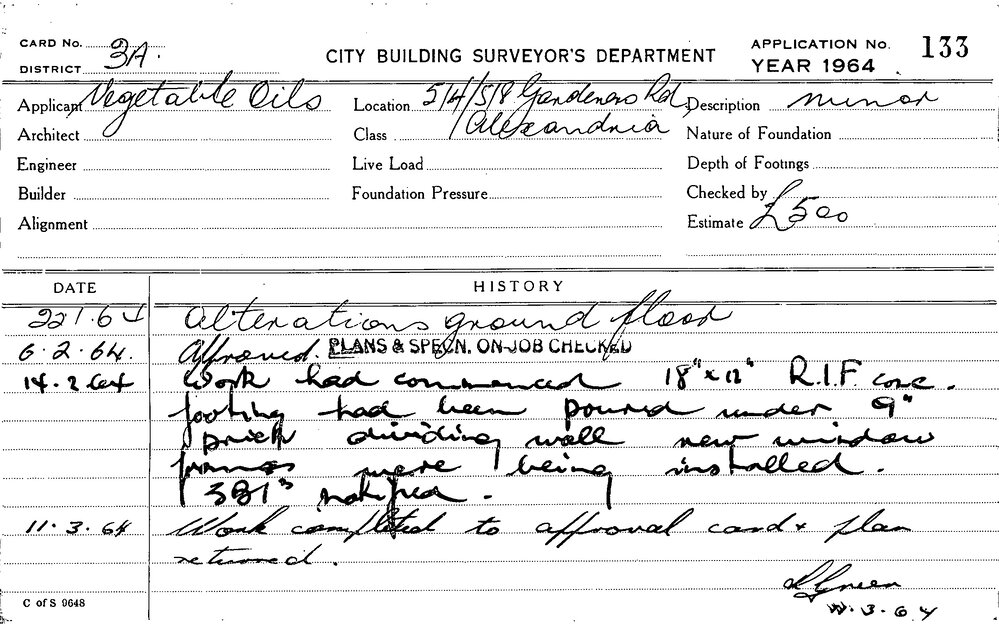 CARD No. 3A.
DISTRICT
CITY BUILDING SURVEYOR'S DEPARTMENT
APPLICATION No. 133
YEAR 1964
Applicant Vegetable Oils
Location 514/518 Gardeners Rd,
Description minor
Architect
Class Alexandria
Nature of Foundation
Engineer
Live Load
Depth of Footings
Builder
Foundation Pressure
Checked by
Alignment
Estimate £500
DATE
HISTORY
22 1.64 Alterations ground floor
6.2.64. Approved. PLANS & SPECN. ON JOB CHECKED
14.2 64 Work had commenced 18"x12" R.I.F conc.
footing had been poured under 9"
brick dividing wall new window
frames were being installed.
notified.
11.3.64 Work completed to approval card & plan
returned.
Green
11.3.64
C of S 9648